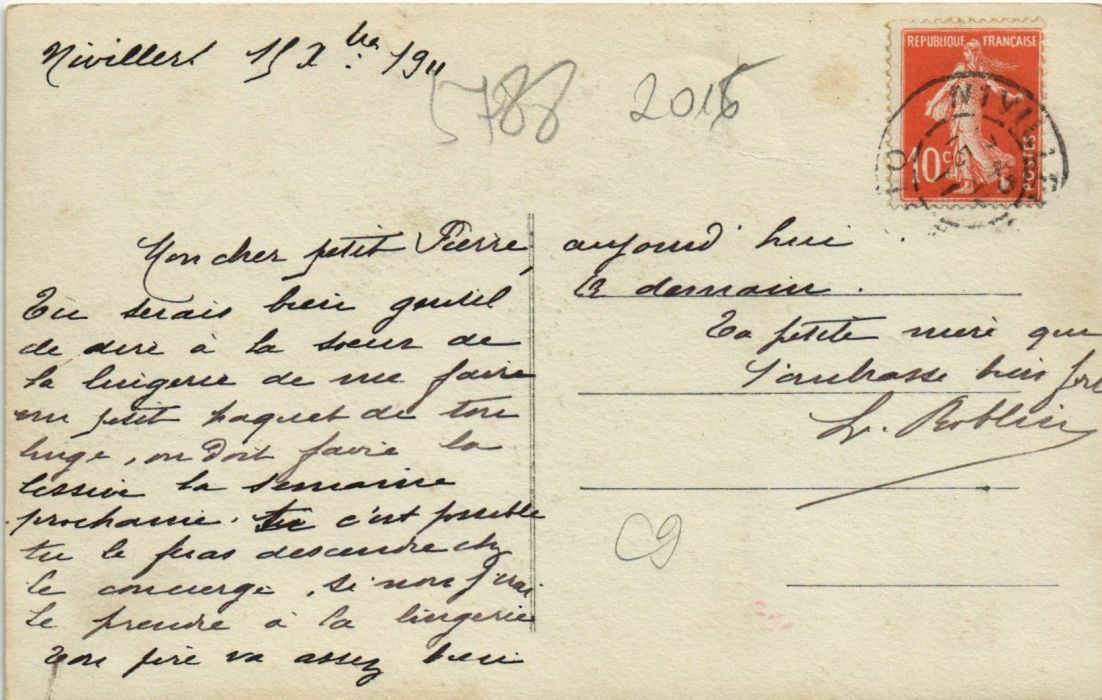 Nivillers 15 Xbre 1911
5788 2016
RÉPUBLIQUE FRANÇAISE
10c
POSTES
NIVILLE
Mon cher petit Pierre,
Tu serais bien gentil
de dire à la soeur de
la lingerie de me faire
un petit paquet de ton
linge, on doit faire la
lessive la semaine
prochaine. c'est possible
tu le feras descendre chz
le concierge, si non j'irai
le prendre à la lingerie
Ton père va assez bien
aujourd'hui.
à demain.
Ta petite mère que
t'embrasse bien fort
L. Roblin
C9